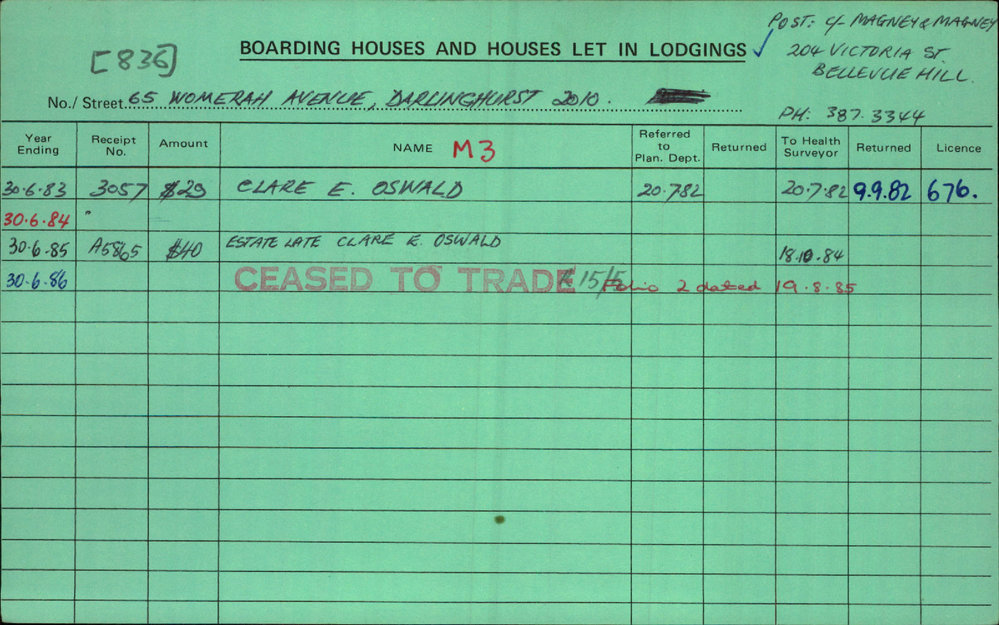 POST: c/- MAGNEY & MAGNEY
204 VICTORIA ST.
BELLEVUE HILL.
PH: 387.3344
[836]
BOARDING HOUSES AND HOUSES LET IN LODGINGS ✓
No./ Street 65 WOMERAH AVENUE, DARLINGHURST 2010.
Year Ending Receipt No. Amount NAME M3 Referred to Plan. Dept. Returned To Health Surveyor Returned Licence
30.6.83 3057 $29 CLARE E. OSWALD 20.7.82 20.7.82 9.9.82 676.
30.6.84 "
30.6.85 A5865 $40 ESTATE LATE CLARE E. OSWALD 18.10.84
30.6.86 CEASED TO TRADE 15/5 Folio 2 dated 19.8.85